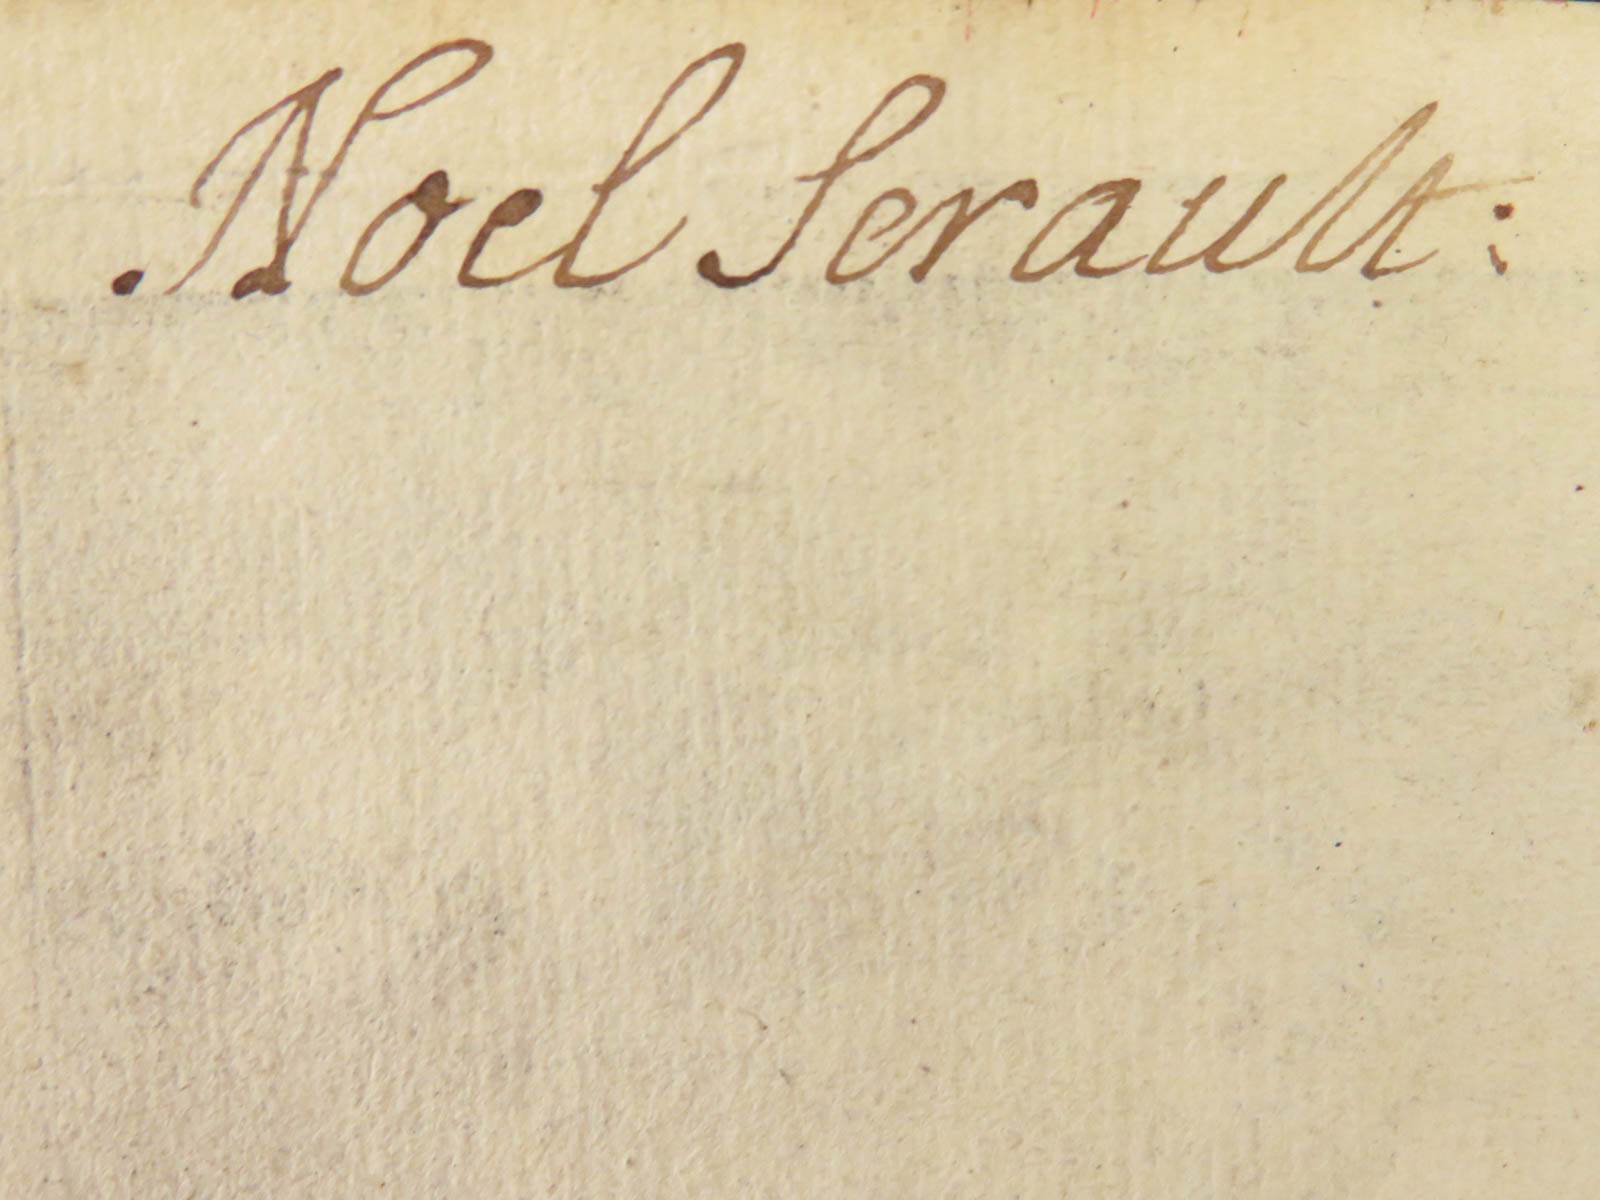 .Noel Serault: